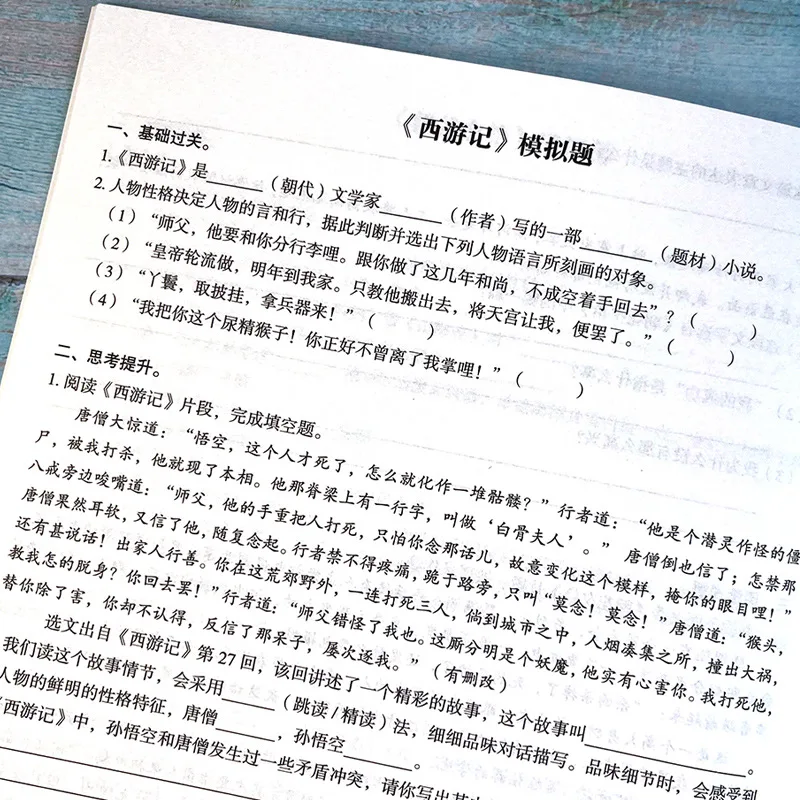 《西游记》模拟题
一、基础过关。
1.《西游记》是______（朝代）文学家______（作者）写的一部______（题材）小说。
2. 人物性格决定人物的言和行，据此判断并选出下列人物语言所刻画的对象。
（1）“师父，他要和你分行李哩。跟你做了这几年和尚，不成空着手回去”？（ ）
（2）“皇帝轮流做，明年到我家。只教他搬出去，将天宫让我，便罢了。”（ ）
（3）“丫鬟，取披挂，拿兵器来！”（ ）
（4）“我把你这个尿精猴子！你正好不曾离了我掌哩！”（ ）
二、思考提升。
1. 阅读《西游记》片段，完成填空题。
唐僧大惊道：“悟空，这个人才死了，怎么就化作一堆骷髅？”行者道：“他是个潜灵作怪的僵
尸，被我打杀，他就现了本相。他那脊梁上有一行字，叫做‘白骨夫人’。”唐僧倒也信了；怎禁那
八戒旁边唆嘴道：“师父，他的手重把人打死，只怕你念那话儿，故意变化这个模样，掩你的眼目哩！”
唐僧果然耳软，又信了他，随复念起。行者禁不得疼痛，跪于路旁，只叫“莫念！莫念！”唐僧道：“猴头，
还有甚说话！出家人行善。你在这荒郊野外，一连打死三人，倘到城市之中，人烟凑集之所，撞出大祸，
教我怎的脱身？你回去罢！”行者道：“师父错怪了我也。这厮分明是个妖魔，他实有心害你。我打死他，
替你除了害，你却不认得，反信了那呆子，屡次逐我。”（有删改）
选文出自《西游记》第 27 回，该回讲述了一个精彩的故事，这个故事叫______。
我们读这个故事情节，会采用______（跳读/精读）法，细细品味对话描写。品味细节时，会感受到
人物的鲜明的性格特征，唐僧______，孙悟空______。
《西游记》中，孙悟空和唐僧发生过一些矛盾冲突，请你写出其